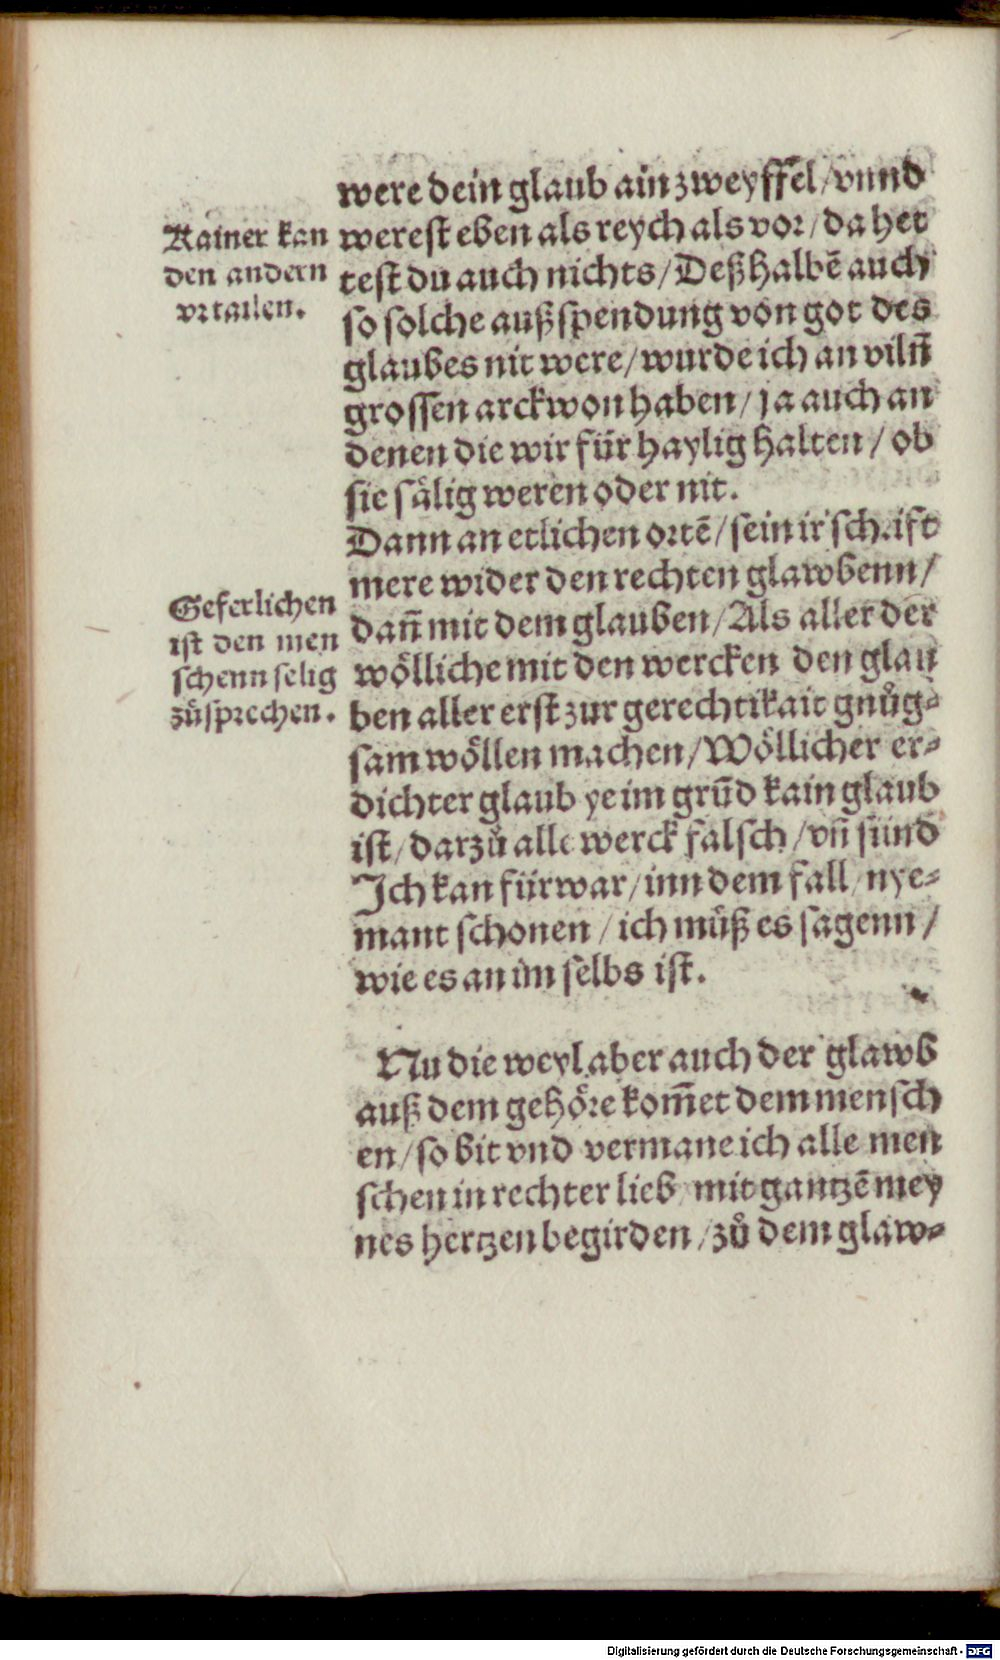 were dein glaub ain zweyffel / vnnd
werest eben als reych als vor / da het
test du auch nichts / Deßhalbē auch
so solche außspendung von got des
glaubes nit were / wurde ich an vilñ
grossen arckwon haben / ja auch an
denen die wir für haylig halten / ob
sie sälig weren oder nit.
Dann an etlichen ortē / sein ir schrift
mere wider den rechten glawbenn /
dañ mit dem glauben / Als aller der
wölliche mit den wercken den glau
ben aller erst zur gerechtikait gnůg-
sam wöllen machen / Wöllicher er-
dichter glaub ye im grūd kain glaub
ist / darzů alle werck falsch / vñ sünd
Ich kan fürwar / inn dem fall / nye-
mant schonen / ich můß es sagenn /
wie es an im selbs ist.
Nu die weyl aber auch der glawb
auß dem gehöre kom̄et dem mensch
en / so bit vnd vermane ich alle men
schen in rechter lieb / mit gantzē mey
nes hertzen begirden / zů dem glaw-
Kainer kan
den andern
vrtailen.
Geferlichen
ist den men
schenn selig
zůsprechen.
Digitalisierung gefördert durch die Deutsche Forschungsgemeinschaft - DFG